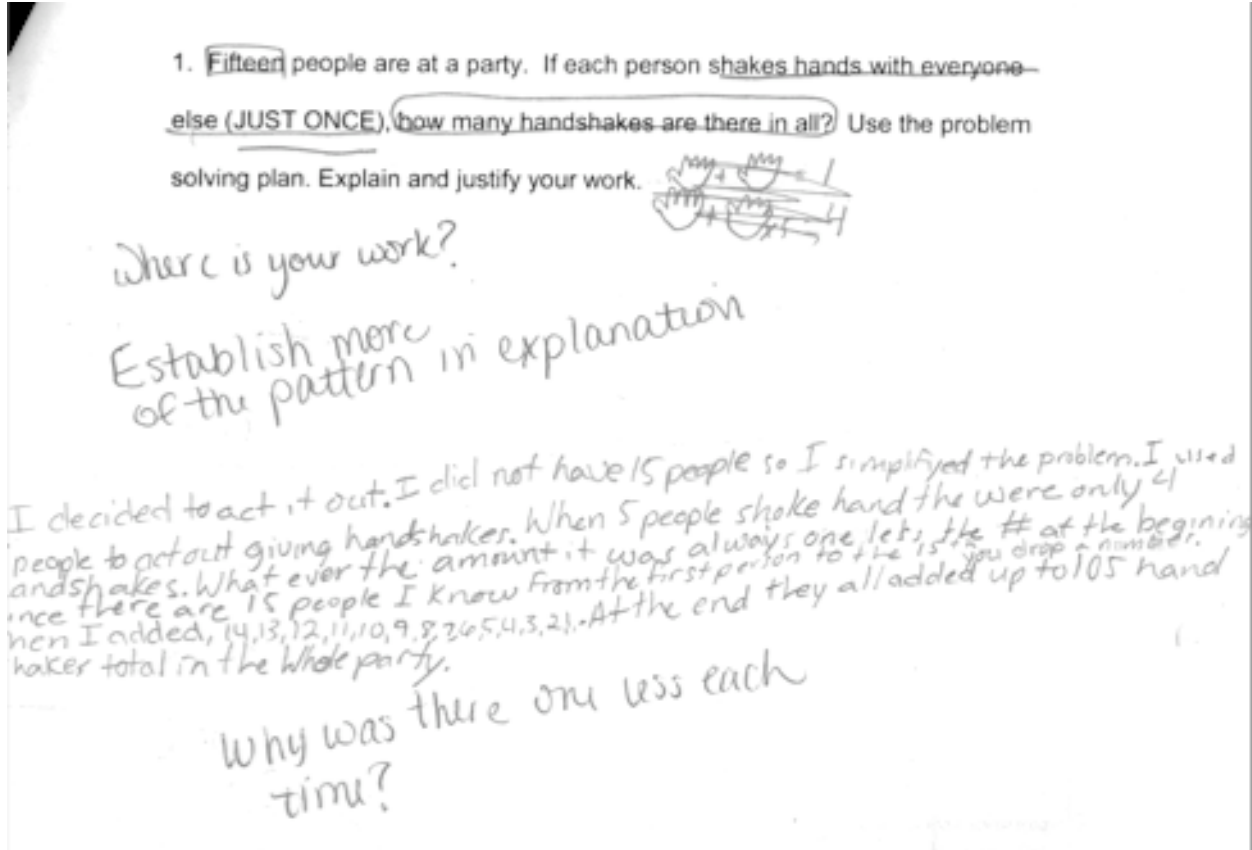 1. Fifteen people are at a party. If each person shakes hands with everyone
else (JUST ONCE), how many handshakes are there in all? Use the problem
solving plan. Explain and justify your work.
+ = 1
+ 4
Where is your work?
Establish more
of the pattern in explanation
I decided to act it out. I did not have 15 people so I simplifyed the problem. I used
people to act out giving handshakes. When 5 people shake hand the were only 4
andshakes. What ever the amount it was always one less the # at the begining
ince there are 15 people I know From the first person to the 15 "you drop a number.
hen I added, 14,13,12,11,10,9,8,7,6,5,4,3,2,1. At the end they all added up to 105 hand
hakes total in the Whole party.
Why was there one less each
time?